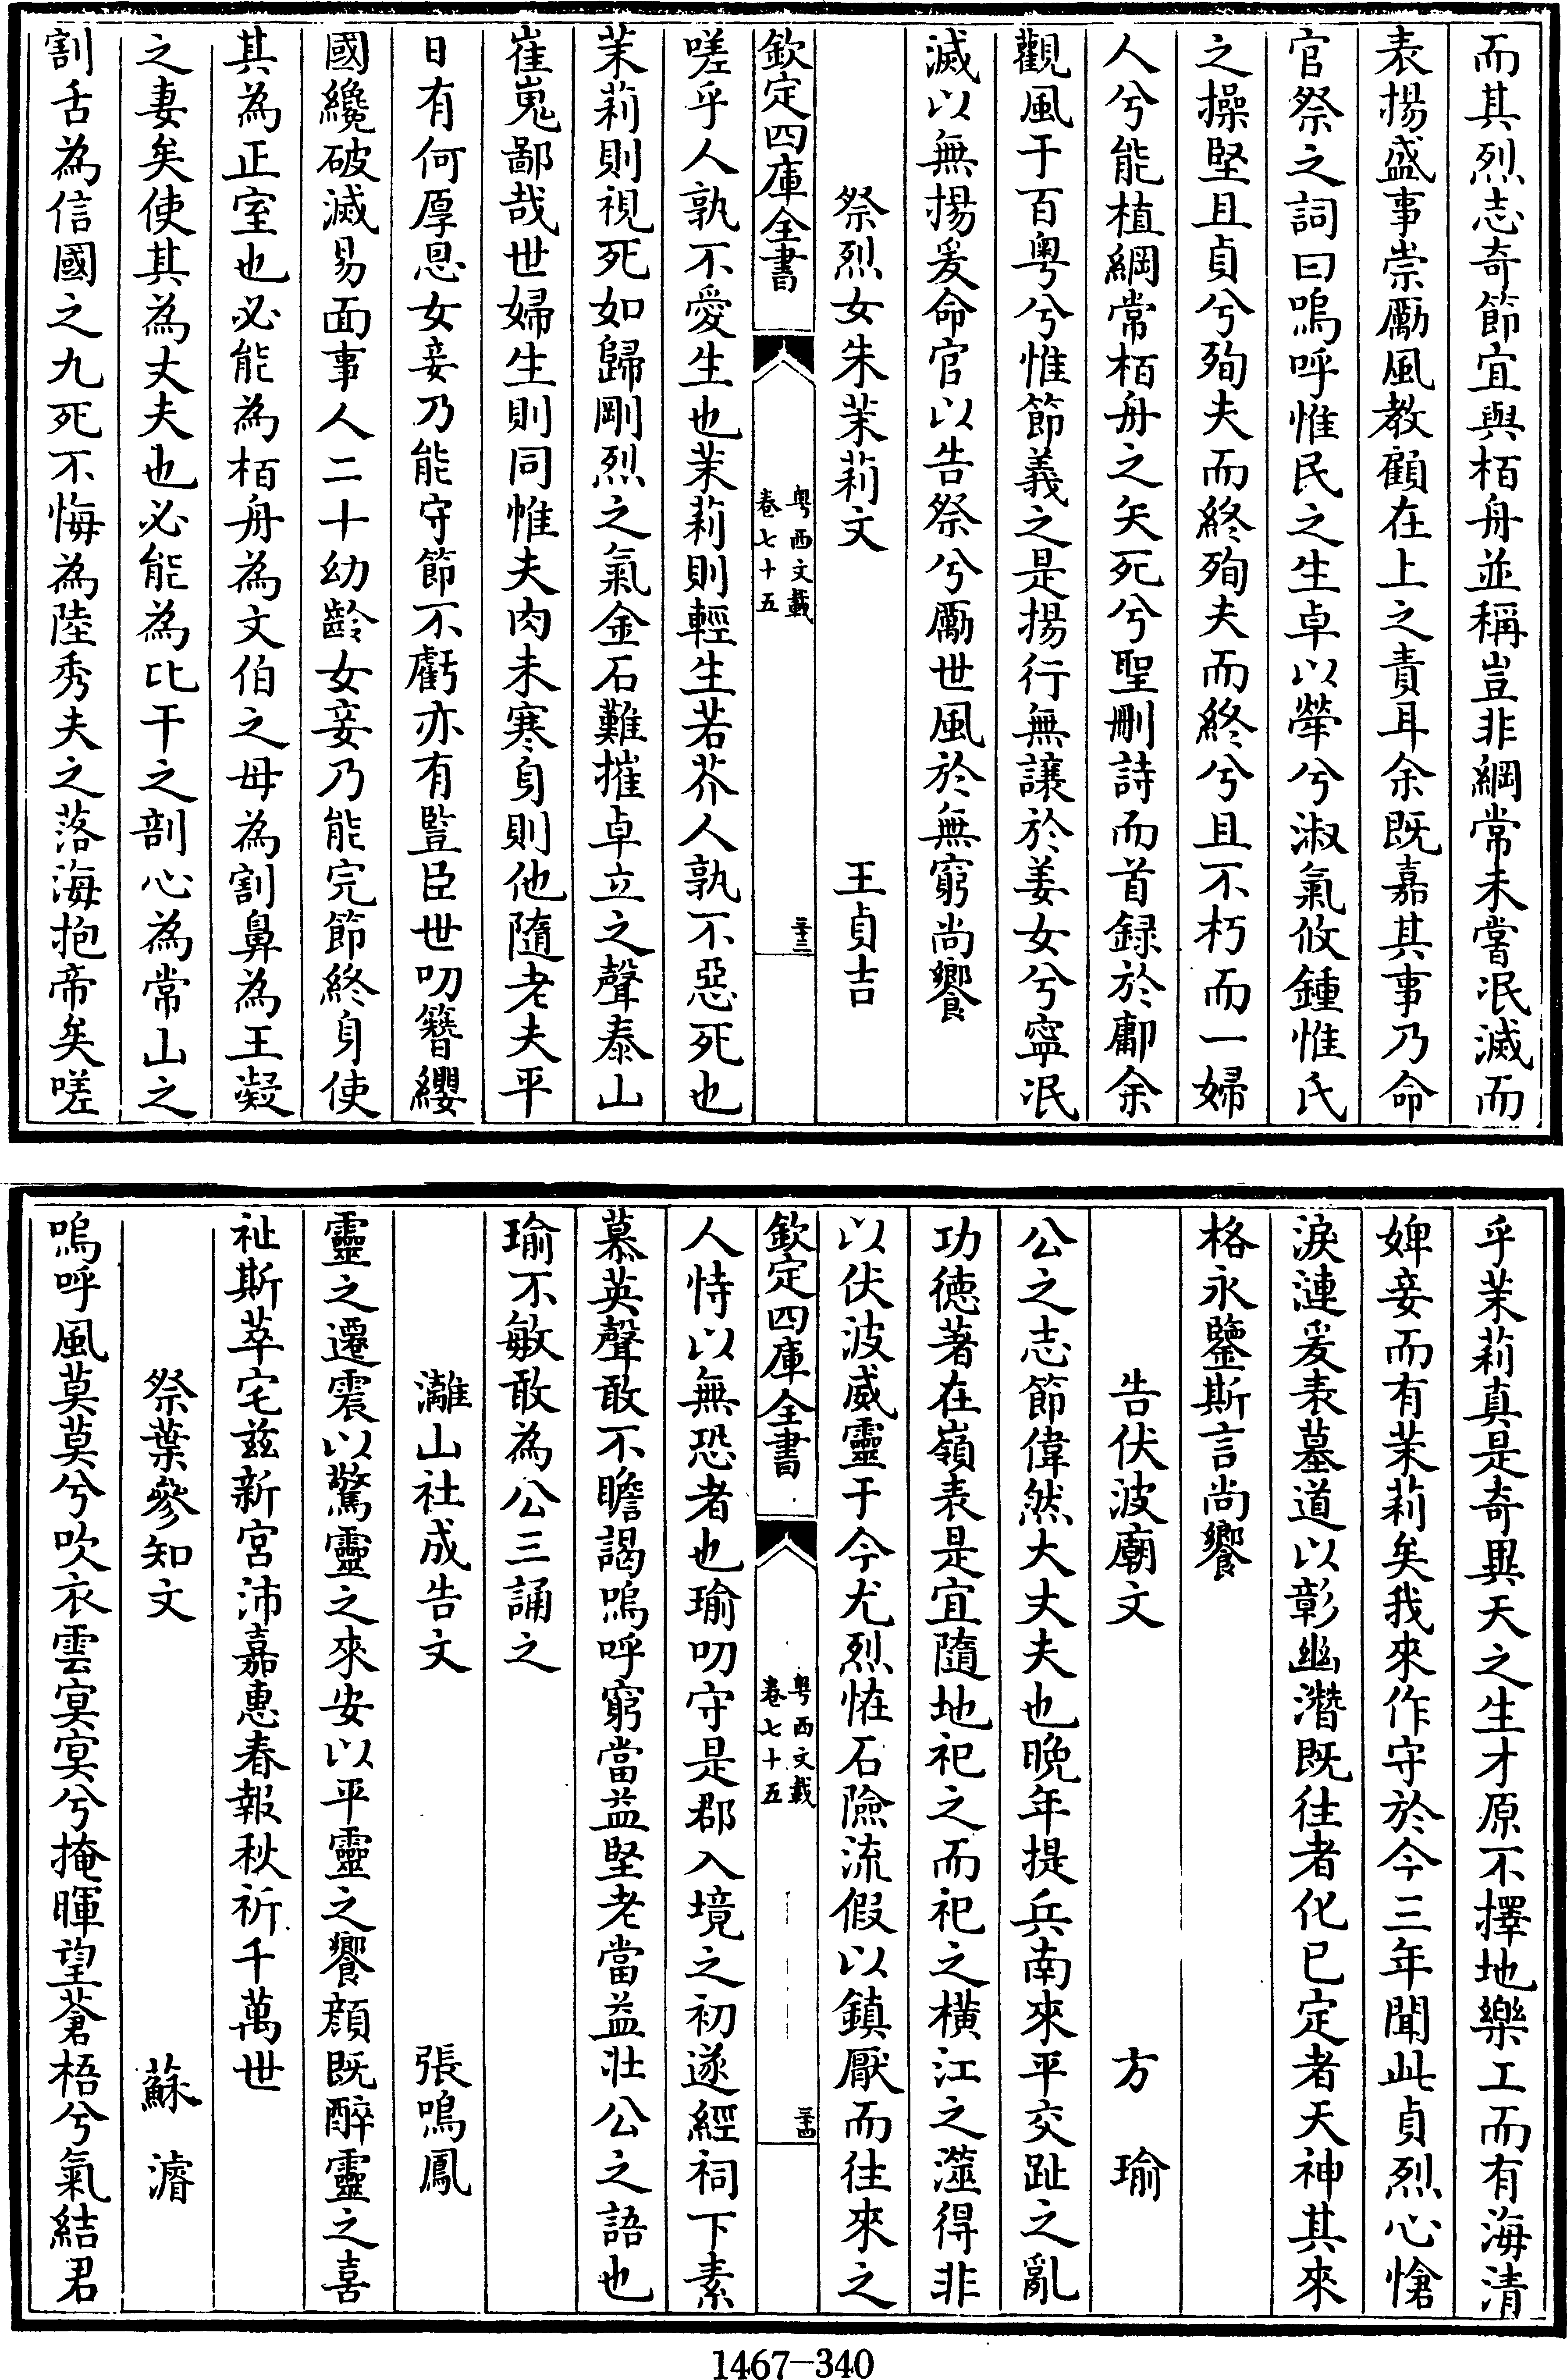 而其烈志奇節宜與栢舟並稱豈非綱常未嘗泯滅而
表揚盛事崇勵風教顧在上之責耳余既嘉其事乃命
官祭之詞曰嗚呼惟民之生卓以犖兮淑氣攸鍾惟氏
之操堅且貞兮殉夫而終殉夫而終兮且不朽而一婦
人兮能植綱常栢舟之矢死兮聖刪詩而首録於鄘余
觀風于百粤兮惟節義之是揚行無讓於姜女兮寧泯
滅以無揚爰命官以告祭兮勵世風於無窮尚饗
祭烈女朱茉莉文 王貞吉
欽定四庫全書 粤西文載 卷七十五 三十三
嗟乎人孰不愛生也茉莉則輕生若芥人孰不惡死也
茉莉則視死如歸剛烈之氣金石難摧卓立之聲泰山
崔嵬鄙哉世婦生則同惟夫肉未寒身則他隨老夫平
日有何厚恩女妾乃能守節不虧亦有豎臣世叨簪纓
國纔破滅易面事人二十幼齡女妾乃能完節終身使
其為正室也必能為栢舟為文伯之母為割鼻為王凝
之妻矣使其為丈夫也必能為比干之剖心為常山之
割舌為信國之九死不悔為陸秀夫之落海抱帝矣嗟
乎茉莉真是奇異天之生才原不擇地樂工而有海清
婢妾而有茉莉矣我來作守於今三年聞此貞烈心愴
淚漣爰表墓道以彰幽潛既往者化已定者天神其來
格永鑒斯言尚饗
告伏波廟文 方瑜
公之志節偉然大丈夫也晚年提兵南來平交趾之亂
功徳著在嶺表是宜隨地祀之而祀之横江之澨得非
以伏波威靈于今尤烈恠石險流假以鎮厭而往來之
欽定四庫全書 粤西文載 卷七十五 三十四
人恃以無恐者也瑜叨守是郡入境之初遂經祠下素
慕英聲敢不瞻謁嗚呼窮當益堅老當益壯公之語也
瑜不敏敢為公三誦之
灕山社成告文 張鳴鳳
靈之遷震以驚靈之來安以平靈之饗顔既醉靈之喜
祉斯萃宅兹新宮沛嘉惠春報秋祈千萬世
祭葉參知文 蘇濬
嗚呼風莫莫兮吹衣雲寞寞兮掩暉望蒼梧兮氣結君
1467—340